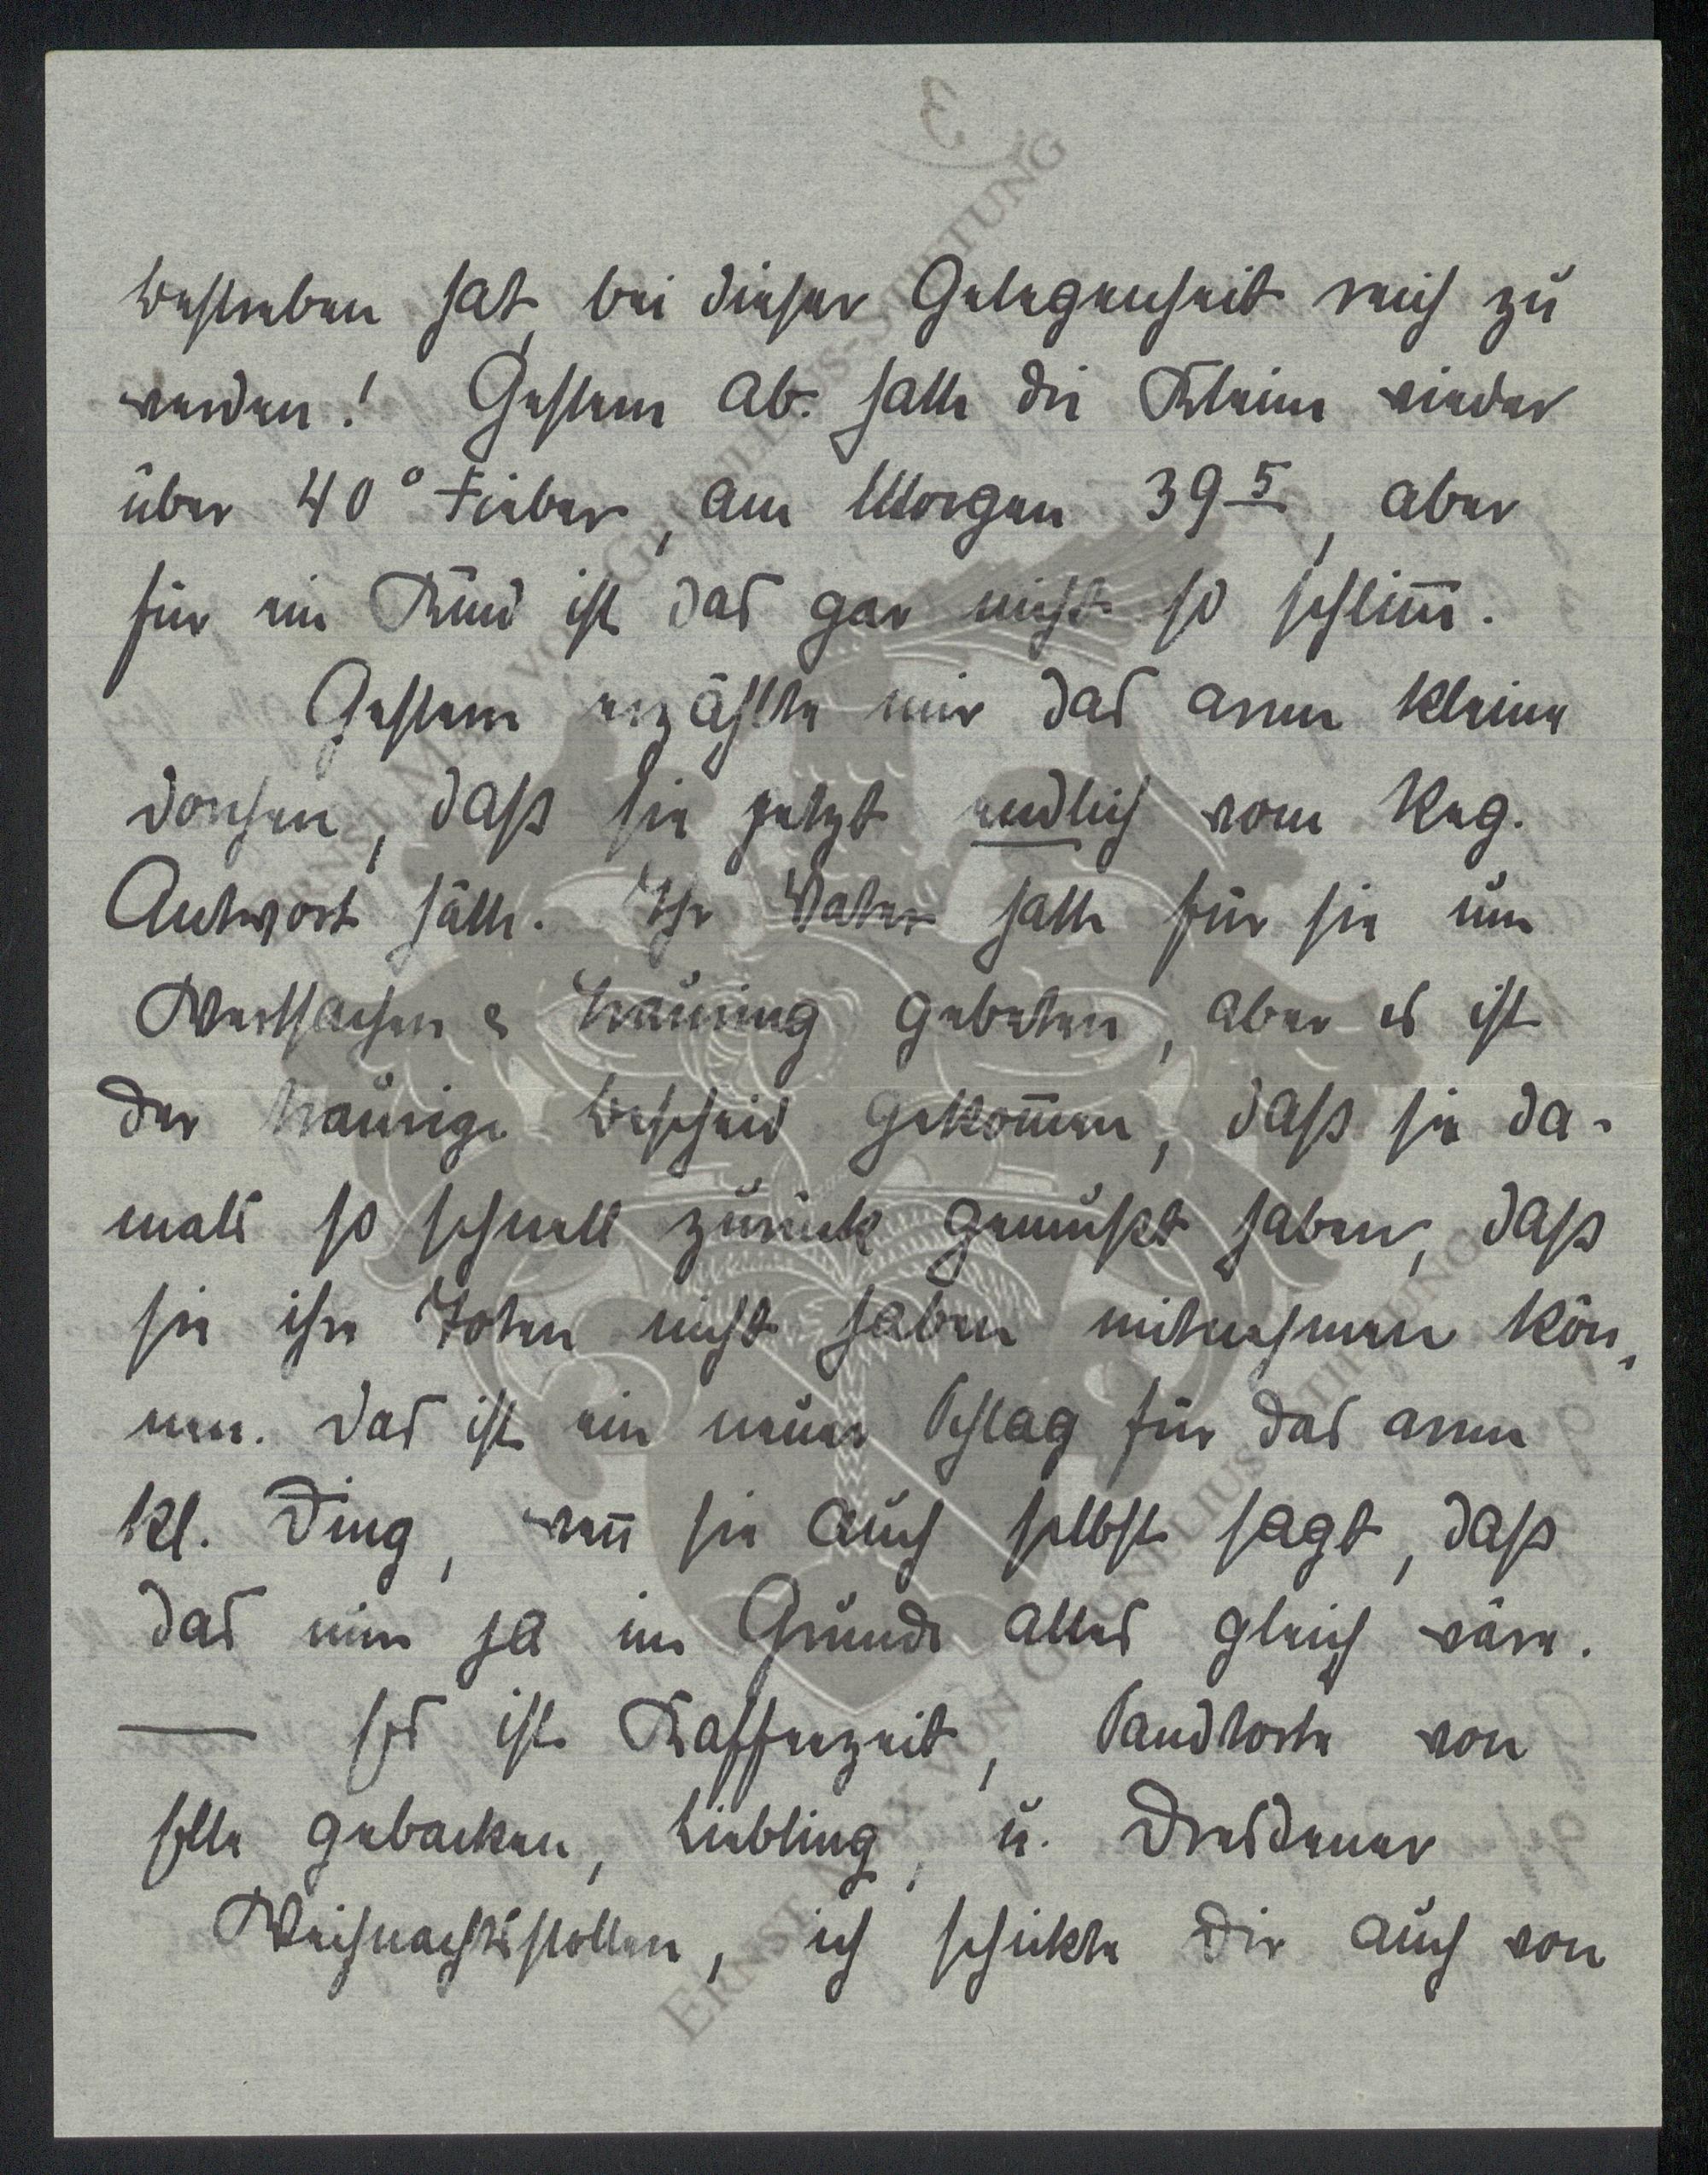 Bestreben hat, bei dieser Gelegenheit reich zu
werden! Gestern Ab. hatte die Kleine wieder
über 40° Fieber, am Morgen 39 5, aber
für ein Kind ist das gar nicht so schlim̅.
Gestern erzählte mir das arme kleine
Dorchen, daß sie jetzt endlich vom Reg.
Antwort hätte. Ihr Vater hatte für sie um
Wertsachen & Trauring gebeten, aber es ist
der traurige Bescheid gekom̅en, daß sie da-
mals so schnell zurück gemußt haben, daß
sie ihre Toten nicht haben mitnehmen kön-
nen. Das ist ein neuer Schlag für das arme
kl. Ding, wen̅ sie auch selbst sagt, daß
das nun ja im Grunde alles gleich wäre.
— Es ist Kaffeezeit, Sandtorte von
Elle gebacken, Liebling, u. Dresdener
Weihnachtsstollen, ich schickte Dir auch von
ERNST MAX VON GRUNELIUS-STIFTUNG
ERNST MAX VON GRUNELIUS-STIFTUNG